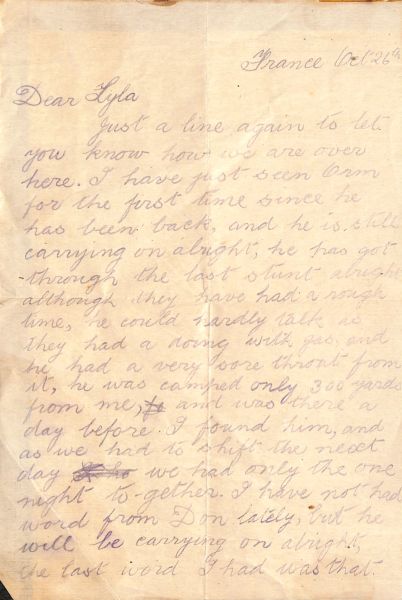 France Oct 26th
Dear Lyla
Just a line again to let
you know how we are over
here. I have just seen Orm
for the first time since he
has been back, and he is still
carrying on alright, he has got
through the last stunt alright
although they have had a rough
time, he could hardly talk as
they had a doing with gas, and
he had a very sore throat from
it, he was camped only 300 yards
from me, and was there a
day before I found him, and
as we had to shift the next
day we had only the one
night to-gether. I have not had
word from Don lately, but he
will be carrying on alright,
the last word I had was that